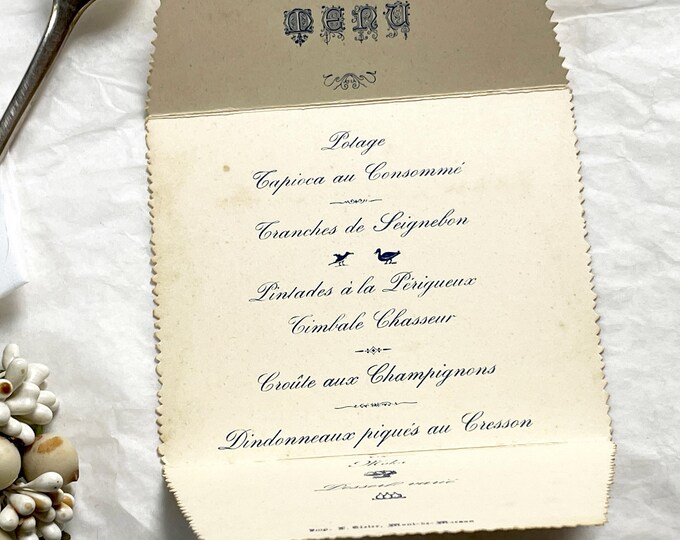 Menu
Potage
Tapioca au Consommé
Tranches de Seignebon
Pintades à la Périgueux
Timbale Chasseur
Croûte aux Champignons
Dindonneaux piqués au Cresson
Dessert varié